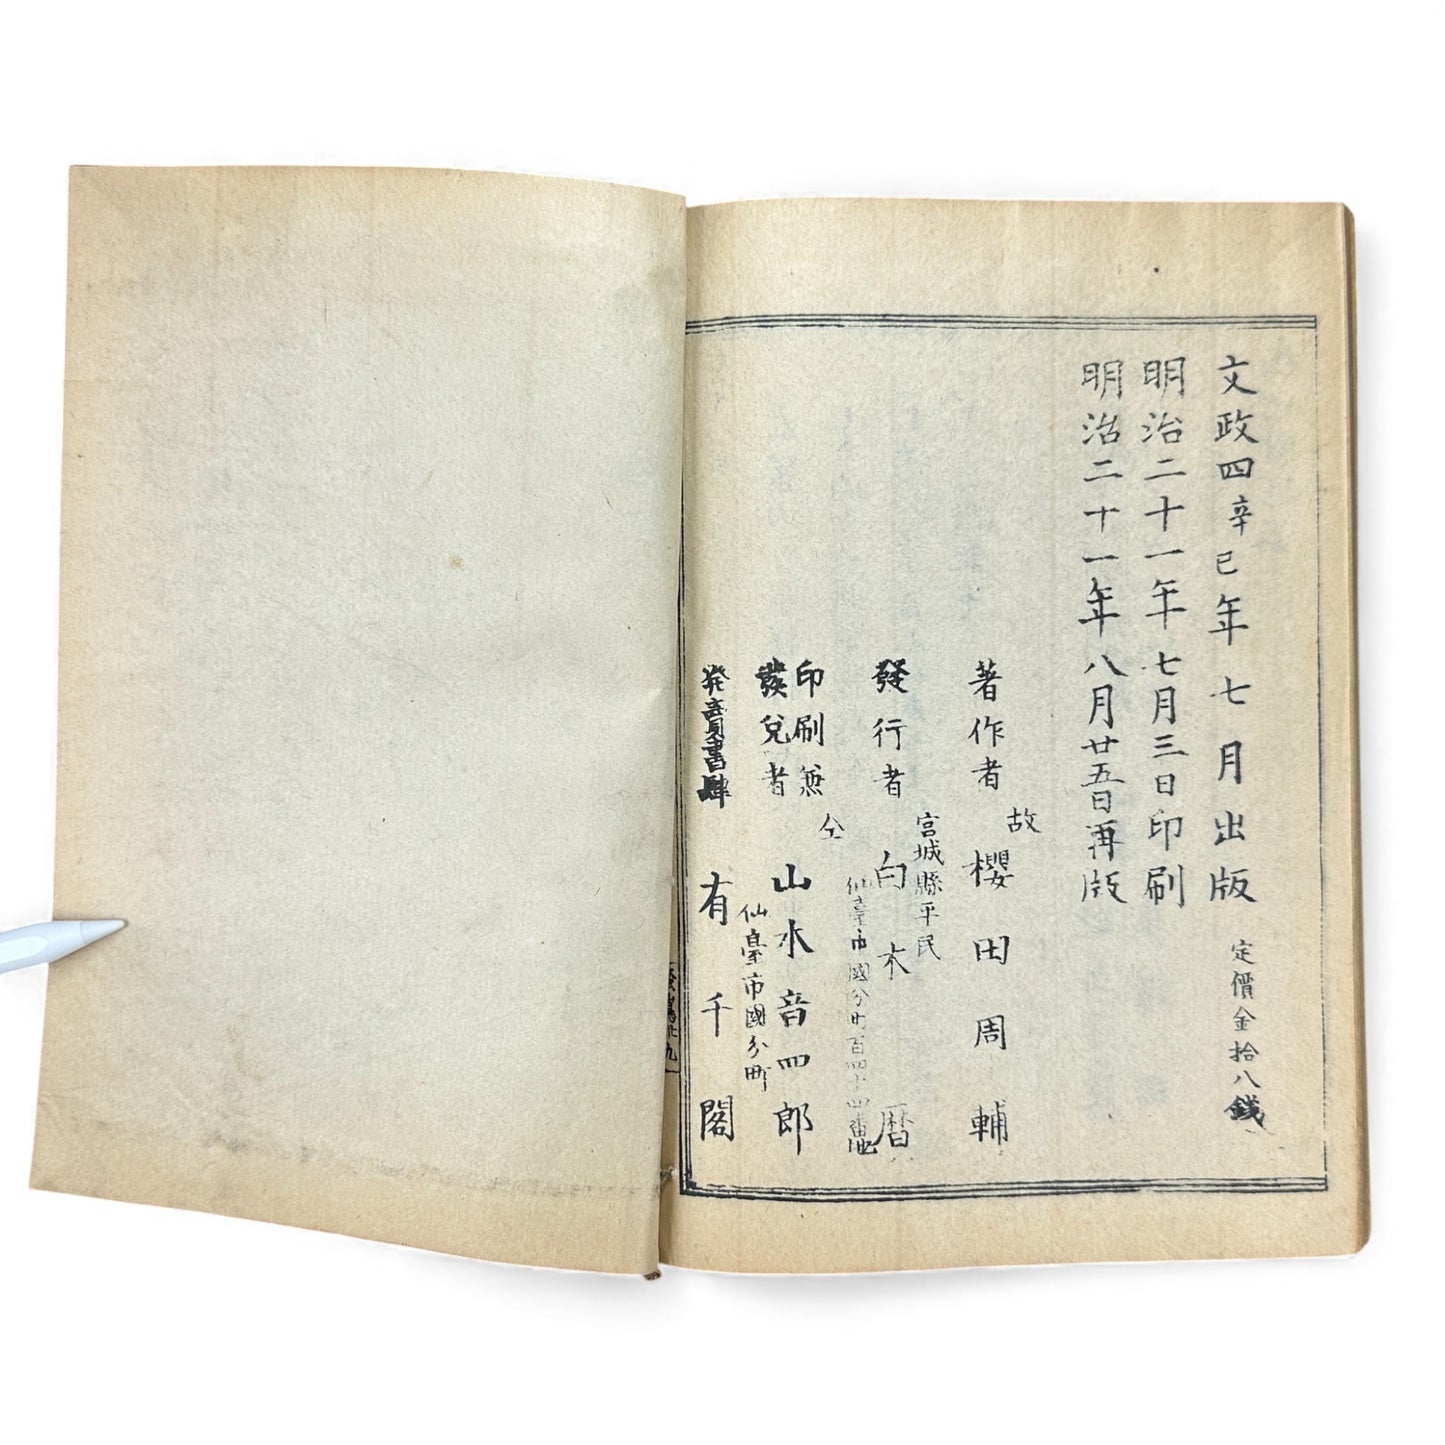 文政四辛巳年七月出版 定價金拾八銭
明治二十一年七月三日印刷
明治二十一年八月廿五日再版
著作者 故 櫻田周輔
宮城縣平民
發行者 白木暦
仙臺市國分町百四十四番地
印刷兼
發兌者 仝 山水音四郎
仙臺市國分町
発賣書肆 有千閣